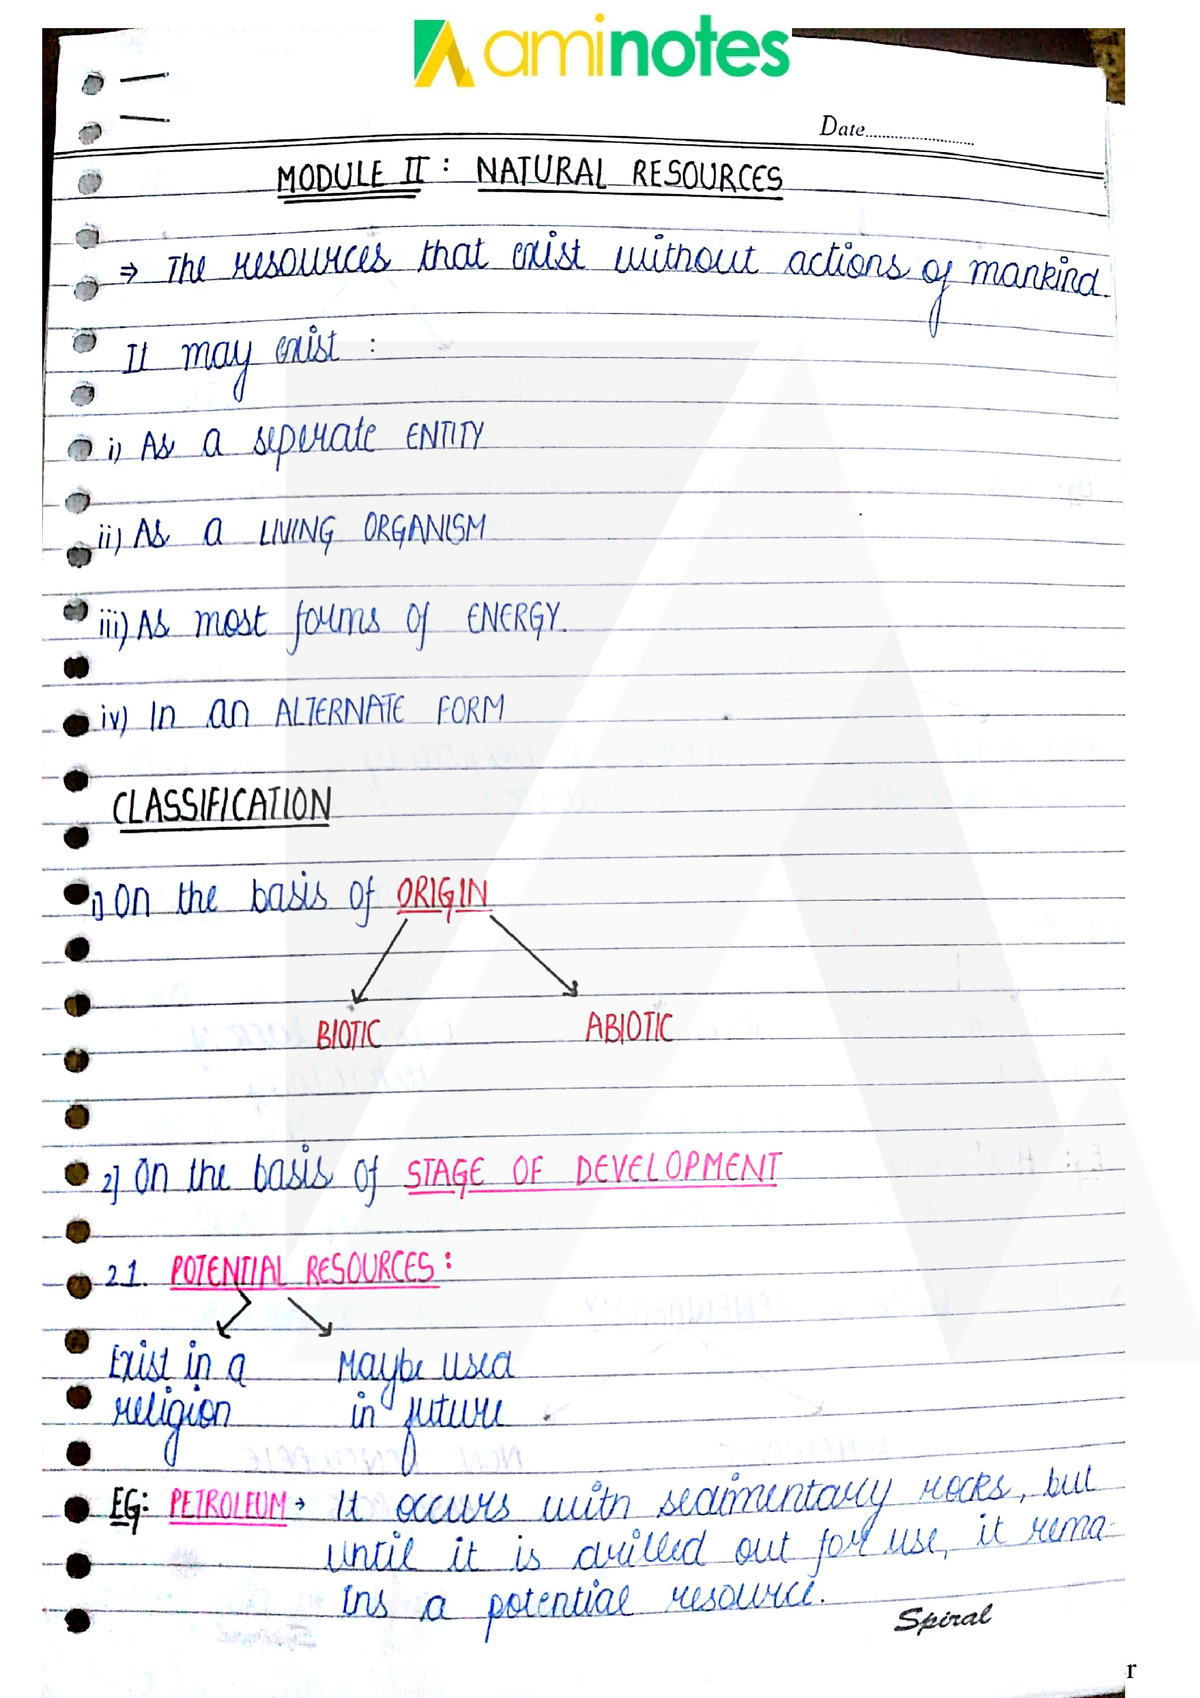 aminotes
Date
MODULE II : NATURAL RESOURCES
⇒ The resources that exist without actions of mankind.
It may exist :
i) As a seperate ENTITY
ii) As a LIVING ORGANISM
iii) As most forms of ENERGY.
iv) In an ALTERNATE FORM
CLASSIFICATION
1) On the basis of ORIGIN
BIOTIC ABIOTIC
2] On the basis of STAGE OF DEVELOPMENT
2.1. POTENTIAL RESOURCES :
Exist in a Maybe used
religion in future
EG: PETROLEUM → It occurs with sedimentary rocks, but
until it is drilled out for use, it rema-
ins a potential resource.
Spiral
r